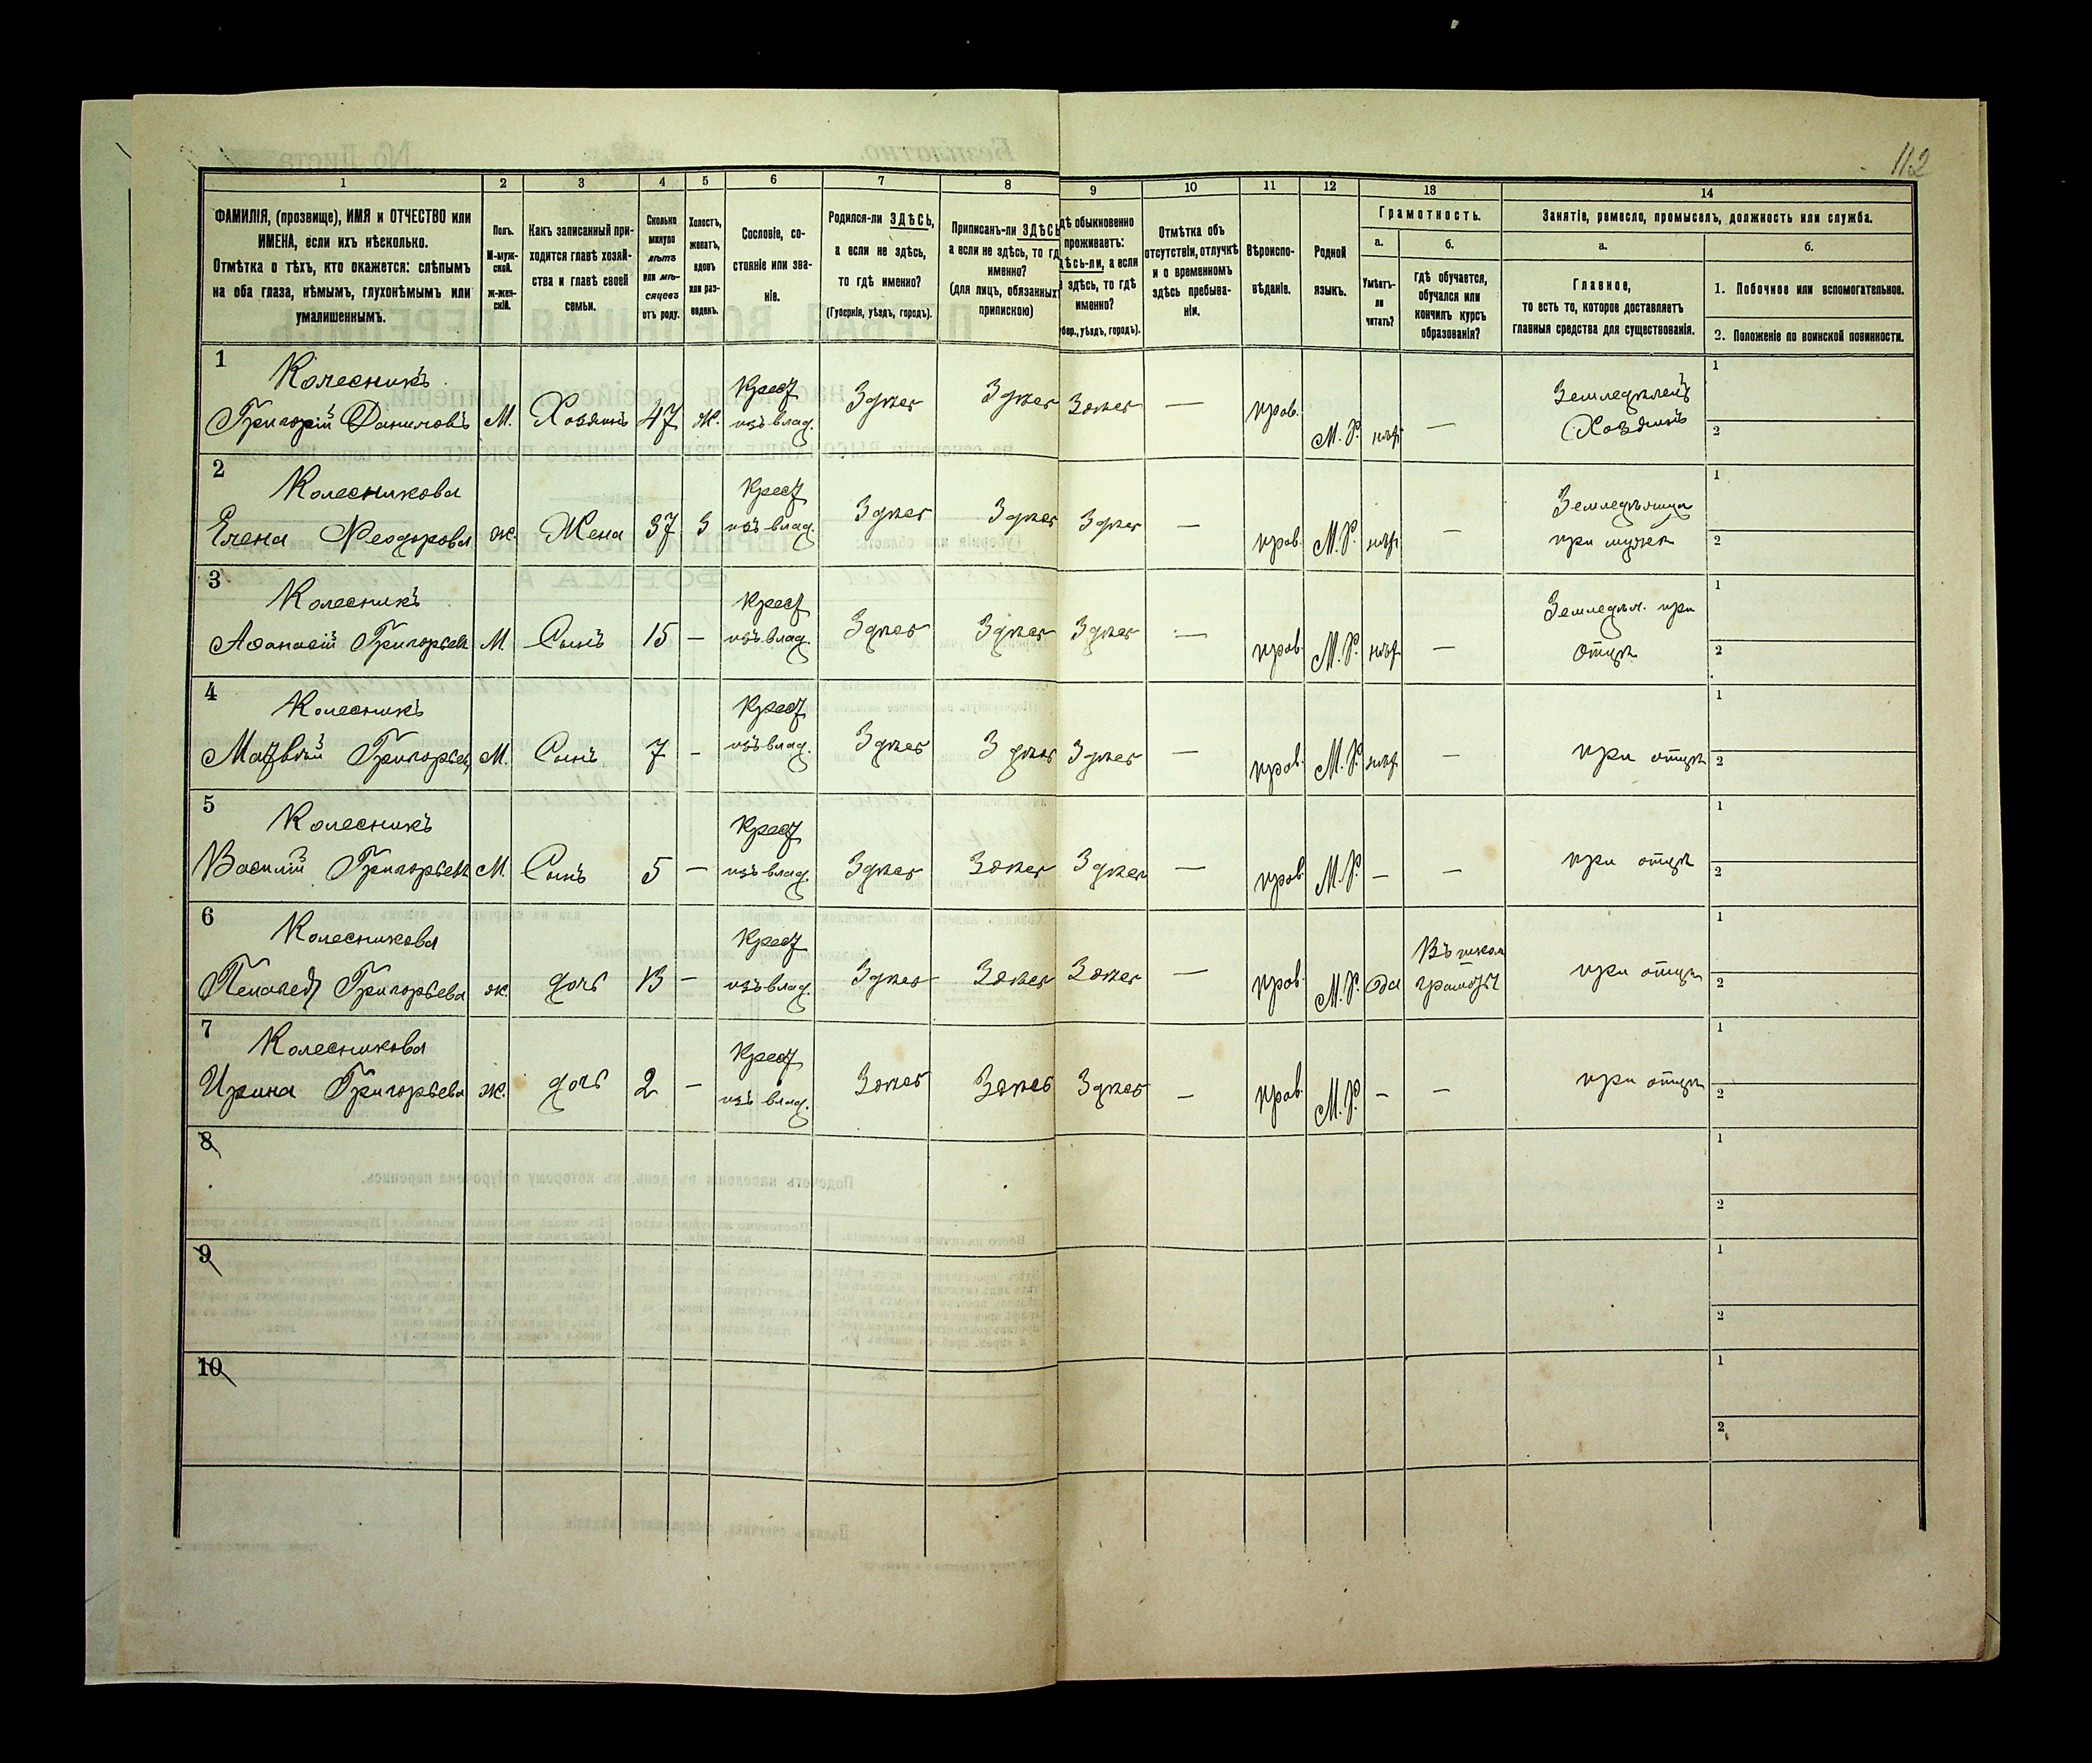 112
1 2 3 4 5 6 7 8 9 10 11 12 13 14
ФАМИЛІЯ, (прозвище), ИМЯ и ОТЧЕСТВО или
ИМЕНА, если ихъ нѣсколько.
Отмѣтка о тѣхъ, кто окажется: слѣпымъ
на оба глаза, нѣмымъ, глухонѣмымъ или
умалишеннымъ.
Полъ.
М-муж-
ской.
ж-жен-
скій.
Какъ записанный при-
ходится главѣ хозяй-
ства и главѣ своей
семьи.
Сколько
минуло
лѣтъ
или мѣ-
сяцевъ
отъ роду.
Холостъ,
женатъ,
вдовъ
или раз-
веденъ.
Сословіе, со-
стояніе или зва-
ніе.
Родился-ли ЗДѢСЬ,
а если не здѣсь,
то гдѣ именно?
(Губернія, уѣздъ, городъ).
Приписанъ-ли ЗДѢСЬ
а если не здѣсь, то гд
именно?
(для лицъ, обязанныхъ
припискою)
дѣ обыкновенно
проживаетъ:
дѣсь-ли, а если
здѣсь, то гдѣ
именно?
убер., уѣздъ, городъ).
Отмѣтка объ
отсутствіи, отлучкѣ
и о временномъ
здѣсь пребыва-
ніи.
Вѣроиспо-
вѣданіе.
Родной
языкъ.
Грамотность.
а.
Умѣетъ-
ли
читать?
б.
Гдѣ обучается,
обучался или
кончилъ курсъ
образованія?
Занятіе, ремесло, промыселъ, должность или служба.
а.
Главное,
то есть то, которое доставляетъ
главныя средства для существованія.
б.
1. Побочное или вспомогательное.
2. Положеніе по воинской повинности.
1
Колесникъ Крест Земледѣлецъ 1
Григорій Даниловъ М. Хозяинъ 47 ж. изъ влад. Здѣсь Здѣсь Здѣсь — прав. М. Р. нѣт — Хозяинъ 2
2
Колесникова Крест Земледѣлица 1
Елена Ѳеодорова ж. Жена 37 З изъ влад. Здѣсь Здѣсь Здѣсь — прав. М. Р. нѣт — при мужѣ 2
3
Колесникъ Крест Земледѣл. при 1
Аѳанасій Григорьевъ М. Сынъ 15 — изъ влад. Здѣсь Здѣсь Здѣсь — прав. М. Р. нѣт — отцѣ 2
4
Колесникъ Крест 1
Матвѣй Григорьев М. Сынъ 7 - изъ влад. Здѣсь Здѣсь Здѣсь — прав. М. Р. нѣт — при отцѣ 2
5
Колесникъ Крест 1
Василій Григорьевъ М. Сынъ 5 — изъ влад. Здѣсь Здѣсь Здѣсь — прав. М. Р. — — при отцѣ 2
6
Колесникова Крест Въ школѣ 1
Григорьева ж. дочь 13 — изъ влад. Здѣсь Здѣсь Здѣсь — прав. М. Р. да грамоты при отцѣ 2
7
Колесникова Крест 1
Ирина Григорьева ж. дочь 2 — изъ влад. Здѣсь Здѣсь Здѣсь — прав. М. Р. — — при отцѣ 2
8 1
2
9 1
2
10 1
2